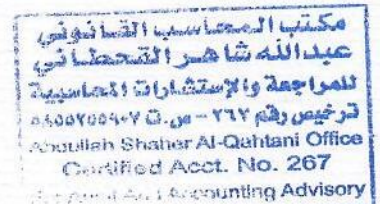 مكتب المحاسب القانوني
عبدالله شاهر القحطاني
للمراجعة والإستشارات المحاسبية
ترخيص رقم ٢٦٧ - س.ت
Abdullah Shaher Al-Qahtani Office
Certified Acct. No. 267
Accounting Advisory